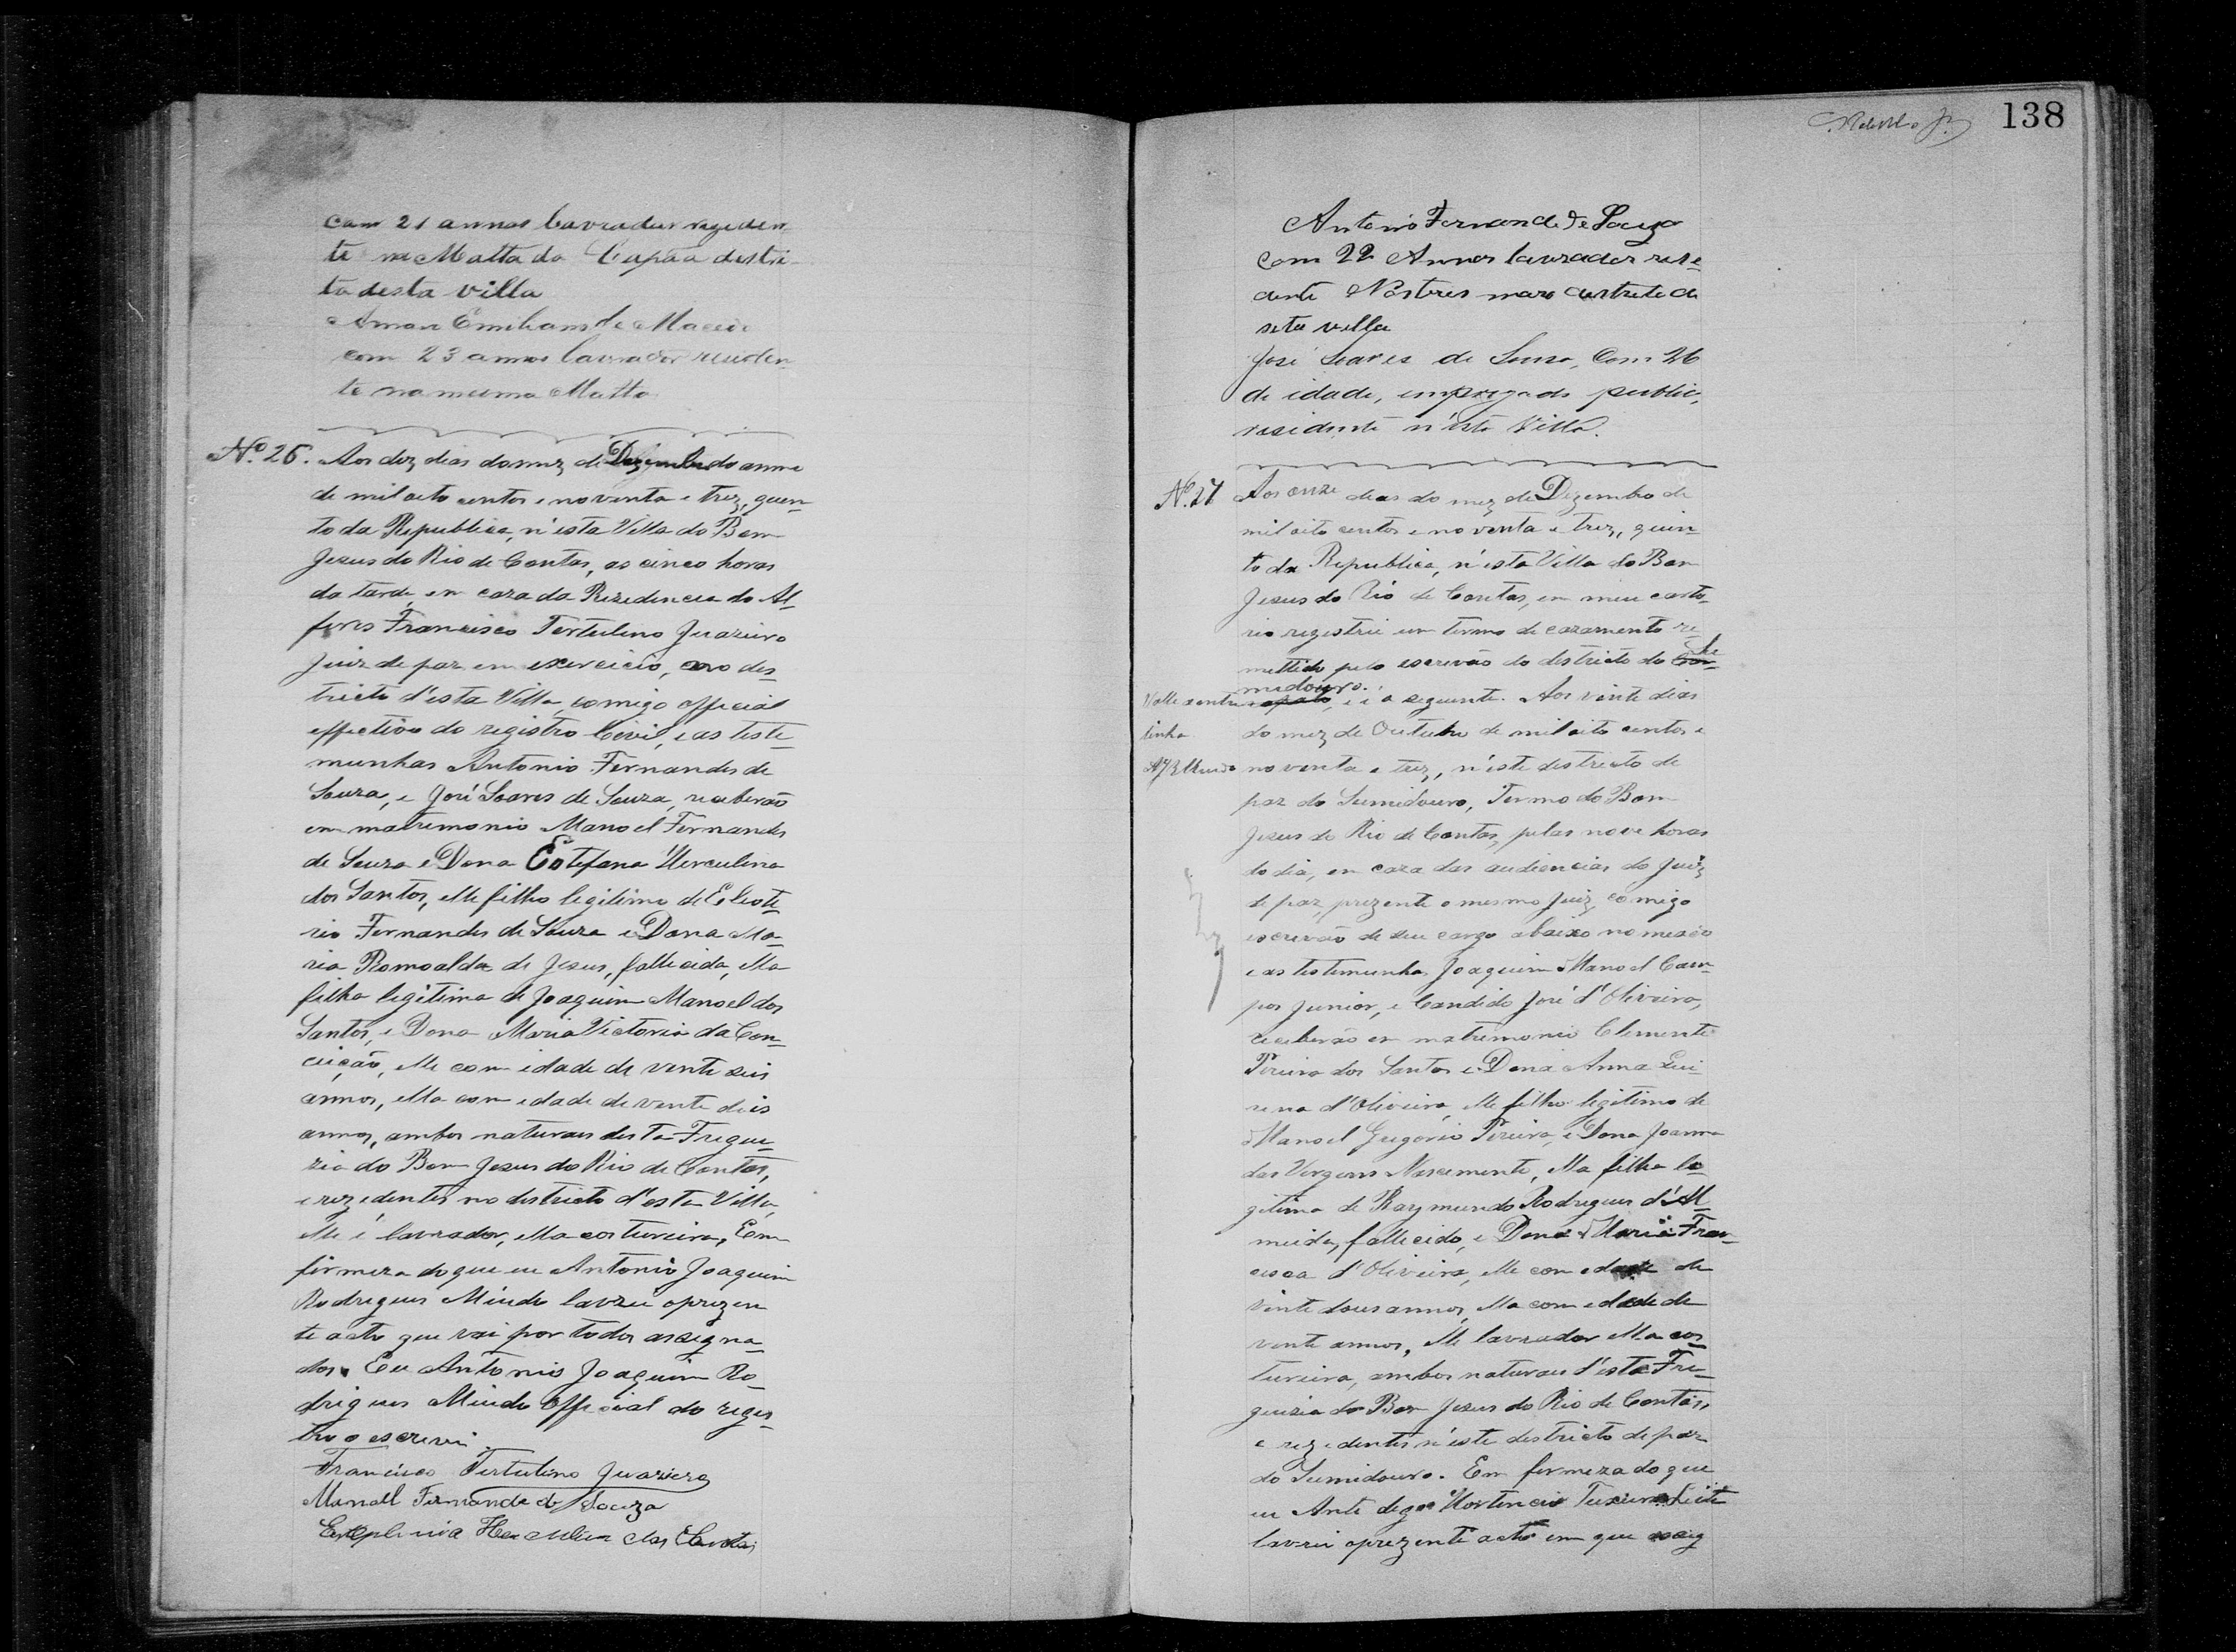 com 21 annos lavrador reziden
te na Matta do Capão destri
to desta villa
Emiliano de Macedo
com 23 annos lavrador residen
te na mesma Matta
Nº 26. Aos dez dias do mez de Dezembro do anno
de mil oito centos e noventa e trez, quin
to da Republica, n'esta Villa do Bom
Jezus do Rio de Contas, as cinco horas
da tarde, em caza da Rezidencia do Al
feres Francisco Tertulino Juazeiro
Juiz de paz em exercicio, no des
tricto d'esta Villa, comigo official
effectivo do registro Civil, e as teste
munhas Antonio Fernandes de
Souza, e José Soares de Souza, receberão
em matrimonio Manoel Fernandes
de Souza e Dona Estefana Herculina
dos Santos, elle filho legitimo de Eleote
rio Fernandes de Souza e Dona Ma
ria Romoalda de Jesus, fallecida, ella
filha legitima de Joaquim Manoel dos
Santos, e Dona Maria Victoria da Con
ceição, elle com idade de vente seis
annos, ella com edade de vente dois
annos, ambos naturaes desta Fregue
zia do Bom Jezus do Rio de Contas,
e rezedentes no destricto d'esta Villa,
elle é lavrador, ella costureira, Em
firmeza do que eu Antonio Joaquim
Rodrigues Miudo lavrei o prezen
te acto que vai por todos assigna
dos. Eu Antonio Joaquim Ro
drigues Miudo Official do reges
tro o escrevi
Francisco Tertulino Juazeiro
Manoel Fernande de Souza
Herculina dos Santos
138
Antonio Fernande de Souza
com 22 Annos lavrador rese
dente destrete de
sta villa
José Soares de Souza, Com 26
de idade, empregado public,
residente n'esta Villa.
Nº 27 Aos onze dias do mez de Dezembro de
mil oito centos e noventa e trez, quin
to da Republica, n'esta Villa do Bom
Jezus do Rio de Contas, em meu carto
rio registrei um termo de cazamento re
mettido pelo escrevão do destricto do
midouro.
Valle a entre é o seguente. Aos vinte dias
linha do mez de Outubro de mil oito centos e
noventa e trez, n'este destricto de
paz do Sumidouro, Termo do Bom
Jezus do Rio de Contas, pelas nove horas
do dia, em caza das audiencias do Juiz
de paz, prezente o mesmo Juiz, comigo
escrevão de seu cargo abaixo nomeado
e as testemunhas, Joaquim Manoel Cam
pos Junior, e Candido José d'Oliveira,
receberão em matrimonio Clemente
Pereira dos Santos e Dona Anna
d'Oliveira, elle filho legitimo de
Manoel Gregorio Pereira, e Dona Joanna
das Vergens Nascimento, ella filha le
gitima de Raymundo Rodrigues d'Al
meida, fallecido, e Dona Maria Fran
cisca d'Oliveira, elle com edade de
vinte dous annos, ella com edade de
vente annos, elle lavrador ella cos
tureira, ambos naturaes d'esta Fre
guezia do Bom Jezus do Rio de Contas,
e rezedentes n'este destricto de paz
do Sumidouro. Em firmeza do que
eu Hortencio
lavrei o prezente acto em que